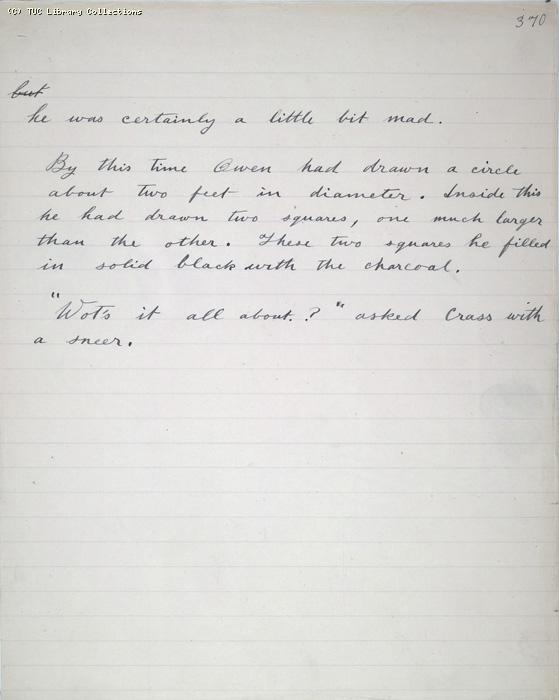 (C) TUC Library Collections
370
but
he was certainly a little bit mad.
By this time Owen had drawn a circle
about two feet in diameter. Inside this
he had drawn two squares, one much larger
than the other. These two squares he filled
in solid black with the charcoal.
"Wot's it all about.?" asked Crass with
a sneer.